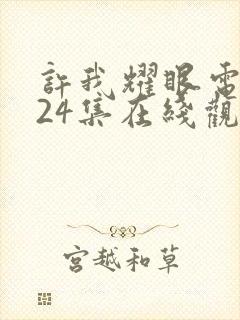 許我耀眼電
24集在綫觀
宮越和草